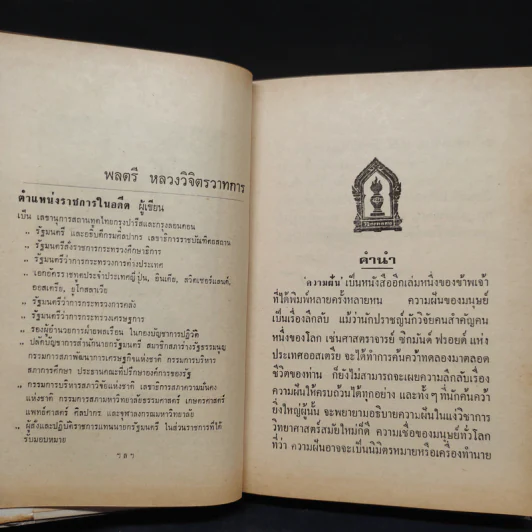 พลตรี หลวงวิจิตรวาทการ
ตำแหน่งราชการในอดีต ผู้เขียน
เป็น เลขานุการสถานทูตไทยกรุงปารีสและกรุงลอนดอน
,, รัฐมนตรี และอธิบดีกรมศิลปากร เลขาธิการราชบัณฑิตยสถาน
,, รัฐมนตรีสั่งราชการกระทรวงศึกษาธิการ
,, รัฐมนตรีว่าการกระทรวงการต่างประเทศ
,, เอกอัครราชทูตประจำประเทศญี่ปุ่น, อินเดีย, สวิตเซอร์แลนด์,
ออสเตรีย, ยูโกสลาเวีย
,, รัฐมนตรีว่าการกระทรวงการคลัง
,, รัฐมนตรีว่าการกระทรวงเศรษฐการ
,, รองผู้อำนวยการฝ่ายพลเรือน ในกองบัญชาการปฏิวัติ
,, ปลัดบัญชาการสำนักนายกรัฐมนตรี สมาชิกสภาร่างรัฐธรรมนูญ
กรรมการสภาพัฒนาการเศรษฐกิจแห่งชาติ กรรมการบริหาร
สภาการศึกษา ประธานคณะที่ปรึกษาองค์การของรัฐ
,, กรรมการบริหารสภาวิจัยแห่งชาติ เลขาธิการสภาความมั่นคง
แห่งชาติ กรรมการสภามหาวิทยาลัยธรรมศาสตร์ เกษตรศาสตร์
แพทย์ศาสตร์ ศิลปากร และจุฬาลงกรณมหาวิทยาลัย
,, ผู้สั่งและปฏิบัติราชการแทนนายกรัฐมนตรี ในส่วนราชการที่ได้
รับมอบหมาย
คำนำ
"ความฝัน" เป็นหนังสืออีกเล่มหนึ่งของข้าพเจ้า
ที่ได้พิมพ์หลายครั้งหลายหน ความฝันของมนุษย์
เป็นเรื่องลึกลับ แม้ว่านักปราชญ์นักวิจัยคนสำคัญคน
หนึ่งของโลก เช่นศาสตราจารย์ ซิกมันด์ ฟรอยด์ แห่ง
ประเทศออสเตรีย จะได้ทำการค้นคว้าทดลองมาตลอด
ชีวิตของท่าน ก็ยังไม่สามารถจะเผยความลึกลับเรื่อง
ความฝันให้ครบถ้วนได้ทุกอย่าง และทั้งๆ ที่นักค้นคว้า
ยิ่งใหญ่ผู้นั้น จะพยายามอธิบายความฝันในแง่วิชาการ
วิทยาศาสตร์สมัยใหม่ก็ดี ความเชื่อของมนุษย์ทั่วโลก
ที่ว่า ความฝันอาจจะเป็นนิมิตรหมายหรือเครื่องทำนาย